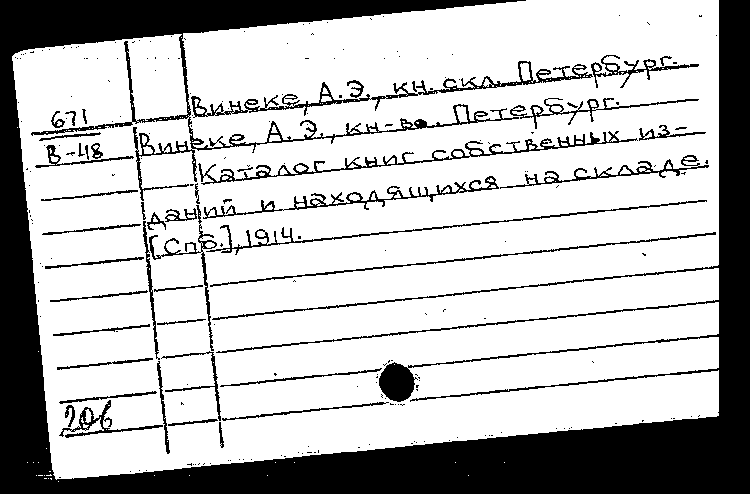 Винеке, А.Э., кн. скл. Петербург.
671
В-48
Винеке, А.Э., кн-во. Петербург.
Каталог книг собственных из-
даний и находящихся на складе.
[Спб.], 1914.
206